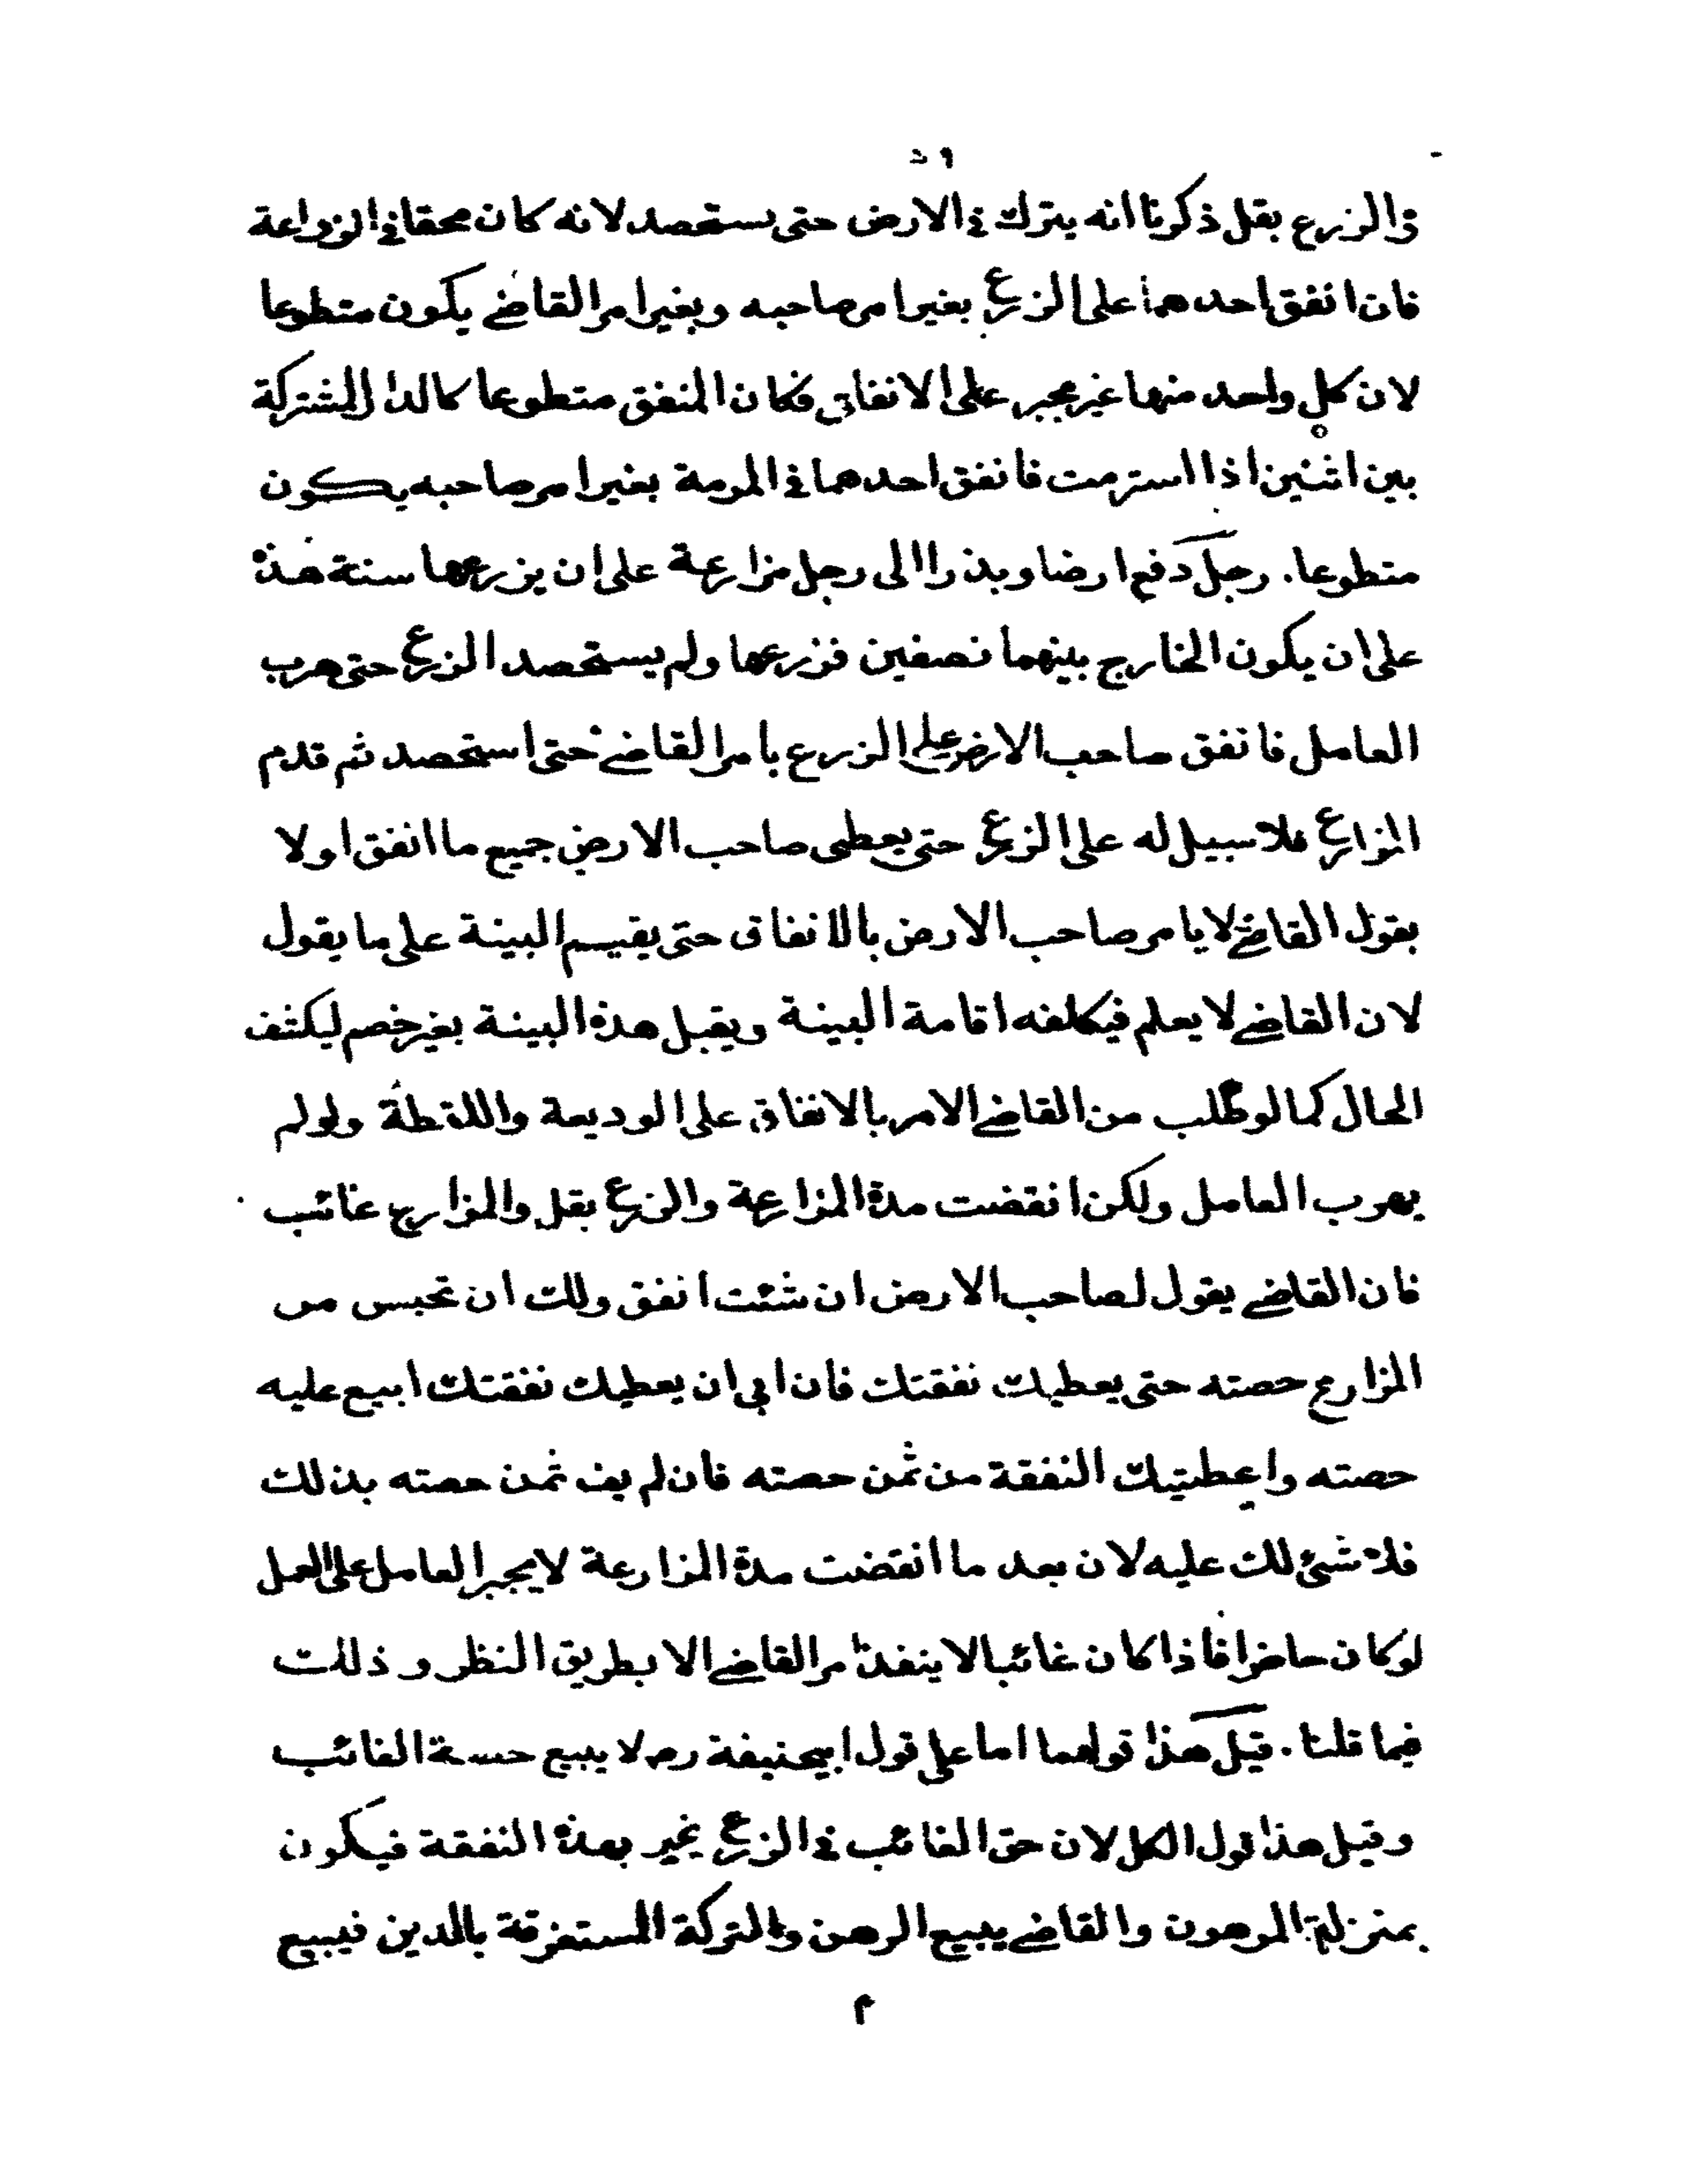 والزرع بقل ذكرنا انه يترك فى الارض حتى يستحصد لانه كان محقا فى الزراعة
فان انفق احدهما على الزرع بغير امر صاحبه وبغير امر القاضى يكون متطوعا
لان كل واحد منهما غير مجبر على الانفاق فكان المنفق متطوعا كالدار المشتركة
بين اثنين اذا استرمت فانفق احدهما فى المرمة بغير امر صاحبه يكون
متطوعا. رجل دفع ارضا وبذرا الى رجل مزارعة على ان يزرعها سنة هذه
على ان يكون الخارج بينهما نصفين فزرعها ولم يستحصد الزرع حتى هرب
العامل فانفق صاحب الارض على الزرع بامر القاضى حتى استحصد ثم قدم
المزارع فلا سبيل له على الزرع حتى يعطى صاحب الارض جميع ما انفق اولا
يقول القاضى لا يامر صاحب الارض بالانفاق حتى يقيم البينة على ما يقول
لان القاضى لا يعلم فيكلفه اقامة البينة ويقبل هذه البينة بغير خصم ليكشف
الحال كما لو طلب من القاضى الامر بالانفاق على الوديعة واللقطة ولو لم
يهرب العامل ولكن انقضت مدة المزارعة والزرع بقل والمزارع غائب
فان القاضى يقول لصاحب الارض ان شئت انفق ولك ان تحبس من
المزارع حصته حتى يعطيك نفقتك فان ابى ان يعطيك نفقتك ابيع عليه
حصته واعطيتك النفقة من ثمن حصته فان لم يف ثمن حصته بذلك
فلا شئ لك عليه لان بعد ما انقضت مدة المزارعة لا يجبر العامل على العمل
لو كان حاضرا فاذا كان غائبا لا ينفذ امر القاضى الا بطريق النظر و ذلك
فيما قلنا. قيل هذا قولهما اما على قول ابيحنيفة رح لا يبيع حصة الغائب
وقيل هذا قول الكل لان حق الغائب فى الزرع يحير بهذه النفقة فيكون
بمنزلة المرهون والقاضى يبيع الرهن والتركة المستغرقة بالدين فيبيع
م